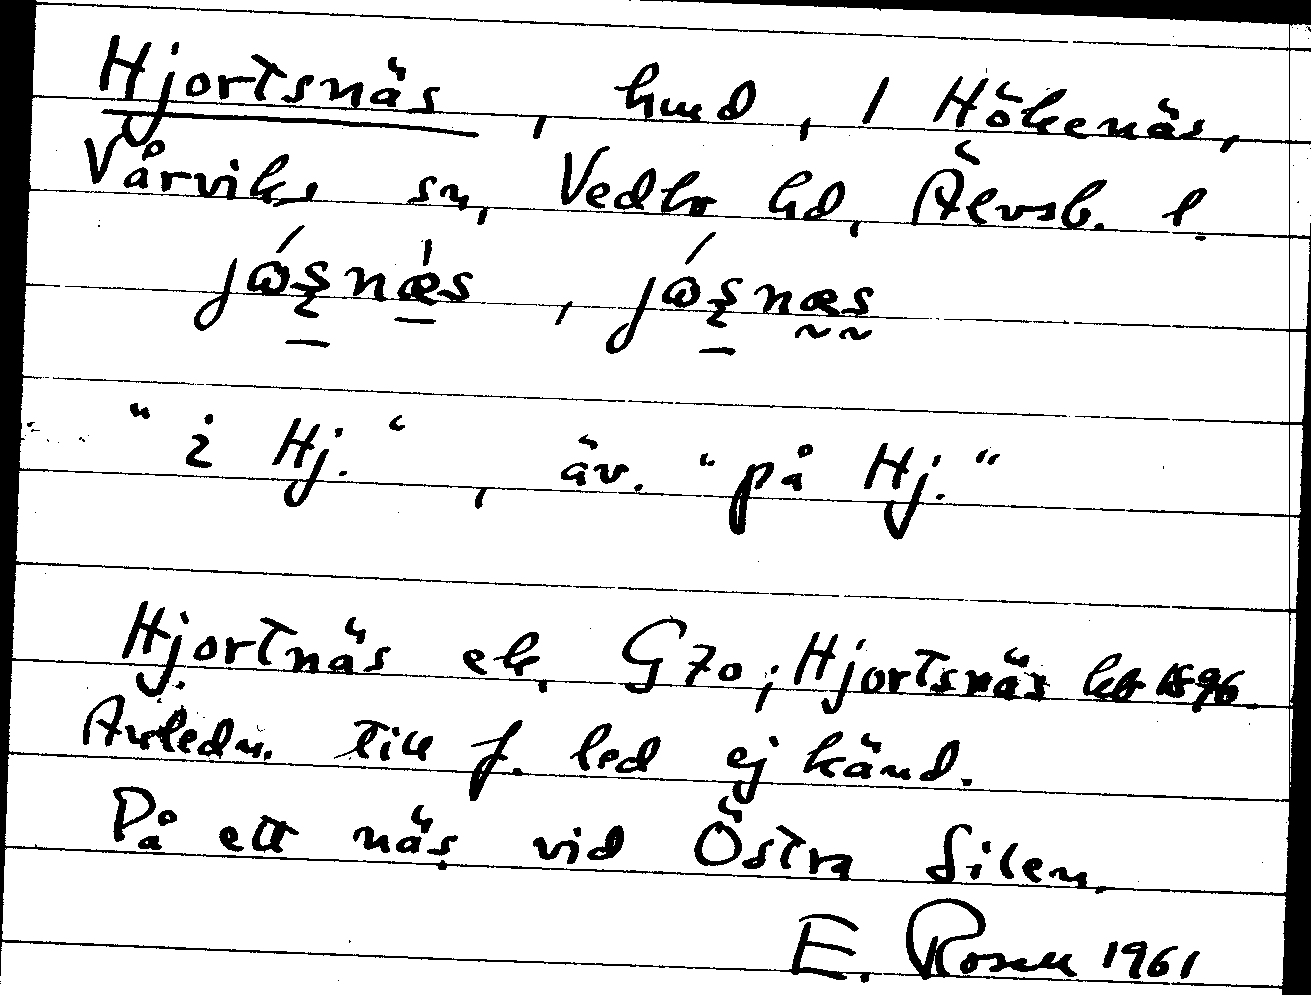 Hjortsnäs, hmd, 1 Hökenäs,
Vårviks sn, Vedbo hd, Älvsb. l.
"i Hj.", äv. "på Hj."
Hjortnäs ek. G 70; Hjortsnäs kb 1896.
Anledn. till f. led ej känd.
På ett näs vid Östra Silen.
E. Rosell 1961